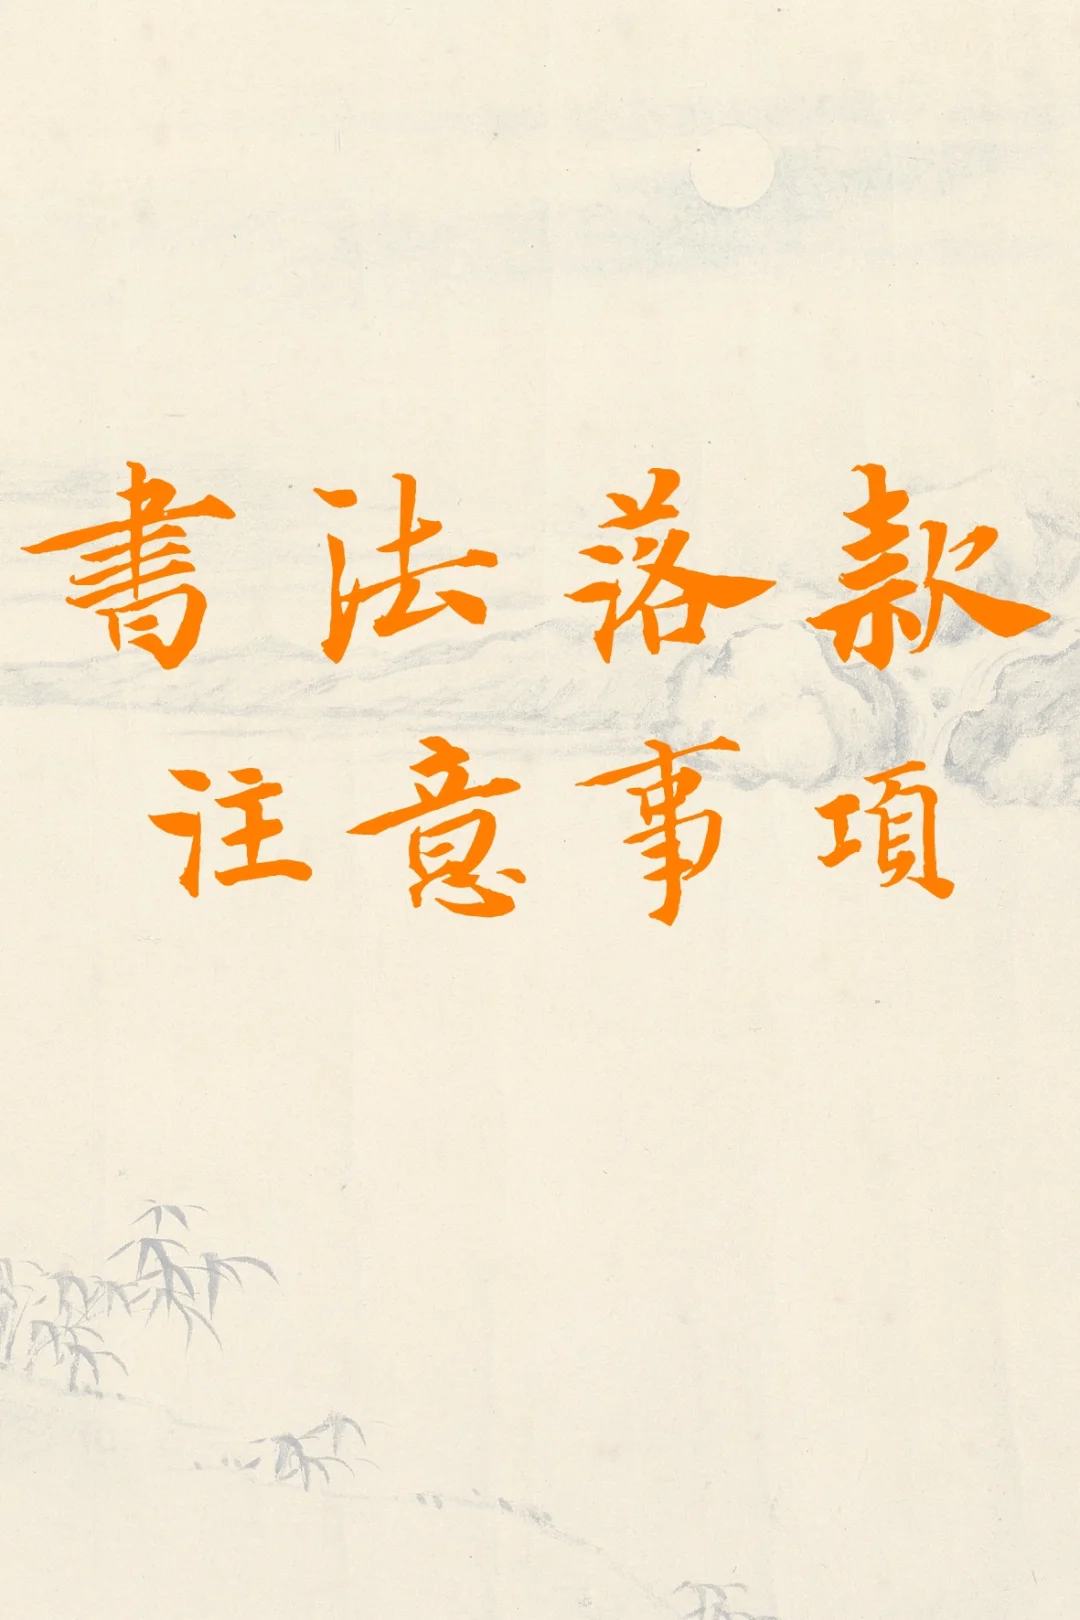 書法落款
注意事項